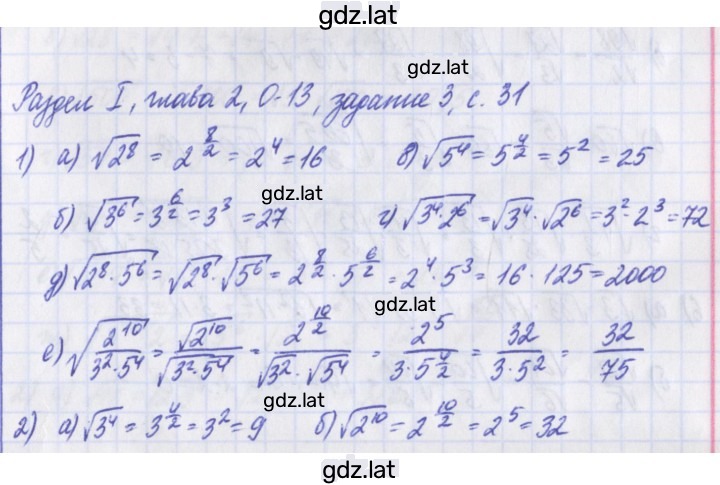 gdz.lat
gdz.lat
Раздел I, глава 2, О-13, задание 3, с. 31
1) а) √2⁸ = 2^(8/2) = 2⁴ = 16 в) √5⁴ = 5^(4/2) = 5² = 25
gdz.lat
б) √3⁶ = 3^(6/2) = 3³ = 27 г) √(3⁴·2⁶) = √3⁴ · √2⁶ = 3² · 2³ = 72
д) √(2⁸·5⁶) = √2⁸ · √5⁶ = 2^(8/2) · 5^(6/2) = 2⁴ · 5³ = 16 · 125 = 2000
gdz.lat
е) √(2¹⁰/(3²·5⁴)) = √2¹⁰/√(3²·5⁴) = 2^(10/2)/(√3² · √5⁴) = 2⁵/(3·5^(4/2)) = 32/(3·5²) = 32/75
gdz.lat
2) а) √3⁴ = 3^(4/2) = 3² = 9 б) √2¹⁰ = 2^(10/2) = 2⁵ = 32
gdz.lat